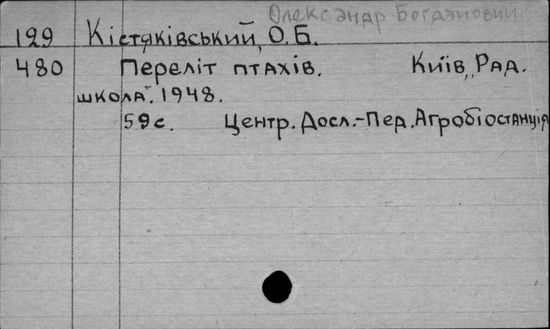 Олександр Богданович
129 Кістяківський, О.Б.
480 Переліт птахів. Київ, „Рад.
школа”. 1948.
59с. Центр. Досл.-Пед. Агробіостанція